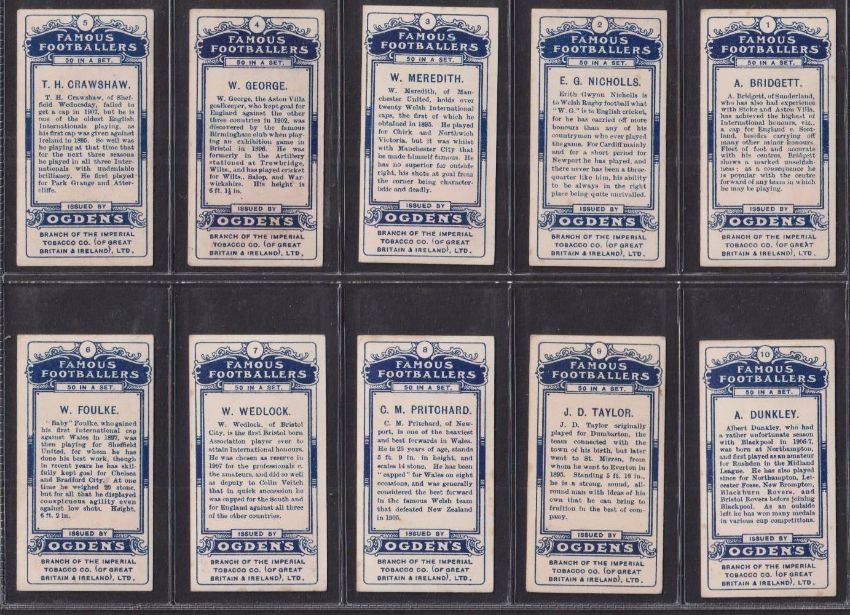 5
FAMOUS
FOOTBALLERS
50 IN A SET.
T. H. CRAWSHAW.
T. H. Crawshaw, of Shef-
field Wednesday, failed to
get a cap in 1907, but he is
one of the oldest English
Internationals playing, as
his first cap was given against
Ireland in 1895. So well was
he playing at that time that
for the next three seasons
he played in all three Inter-
nationals with undeniable
brilliancy. He first played
for Park Grange and Atter-
cliffe.
ISSUED BY
OGDEN'S
BRANCH OF THE IMPERIAL
TOBACCO CO. (OF GREAT
BRITAIN & IRELAND), LTD.
4
FAMOUS
FOOTBALLERS
50 IN A SET.
W. GEORGE.
W. George, the Aston Villa
goalkeeper, who kept goal for
England against the other
three countries in 1902, was
discovered by the famous
Birmingham club when play-
ing an exhibition game in
Bristol in 1896. He was
formerly in the Artillery
stationed at Trowbridge,
Wilts., and has played cricket
for Wilts., Salop, and War-
wickshire. His height is
6 ft. 1½ in.
ISSUED BY
OGDEN'S
BRANCH OF THE IMPERIAL
TOBACCO CO. (OF GREAT
BRITAIN & IRELAND), LTD.
3
FAMOUS
FOOTBALLERS
50 IN A SET.
W. MEREDITH.
W. Meredith, of Man-
chester United, holds over
twenty Welsh International
caps, the first of which he
obtained in 1895. He played
for Chirk and Northwich
Victoria, but it was whilst
with Manchester City that
he made himself famous. He
has no superior for outside
right, his shots at goal from
the corner being character-
istic and deadly.
ISSUED BY
OGDEN'S
BRANCH OF THE IMPERIAL
TOBACCO CO. (OF GREAT
BRITAIN & IRELAND), LTD.
2
FAMOUS
FOOTBALLERS
50 IN A SET.
E. G. NICHOLLS.
Erith Gwyon Nicholls is
to Welsh Rugby football what
"W. G." is to English cricket,
for he has carried off more
honours than any of his
countrymen who ever played
the game. For Cardiff mainly
and for a short period for
Newport he has played, and
there never has been a three-
quarter like him, his ability
to be always in the right
place being quite unrivalled.
ISSUED BY
OGDEN'S
BRANCH OF THE IMPERIAL
TOBACCO CO. (OF GREAT
BRITAIN & IRELAND), LTD.
1
FAMOUS
FOOTBALLERS
50 IN A SET.
A. BRIDGETT.
A. Bridgett, of Sunderland,
who has also had experience
with Stoke and Aston Villa,
has achieved the highest of
International honours, viz.,
a cap for England v. Scot-
land, besides carrying off
many other minor honours.
Fleet of foot and accurate
with his centres, Bridgett
shows a marked unselfish-
ness: as a consequence he
is popular with the centre
forward of any team in which
he may be playing.
ISSUED BY
OGDEN'S
BRANCH OF THE IMPERIAL
TOBACCO CO. (OF GREAT
BRITAIN & IRELAND), LTD.
6
FAMOUS
FOOTBALLERS
50 IN A SET.
W. FOULKE.
"Baby" Foulke, who gained
his first International cap
against Wales in 1897, was
then playing for Sheffield
United, for whom he has
done his best work, though
in recent years he has skil-
fully kept goal for Chelsea
and Bradford City. At one
time he weighed 20 stone,
but for all that he displayed
conspicuous agility even
against low shots. Height,
6 ft. 2 in.
ISSUED BY
OGDEN'S
BRANCH OF THE IMPERIAL
TOBACCO CO. (OF GREAT
BRITAIN & IRELAND), LTD.
7
FAMOUS
FOOTBALLERS
50 IN A SET.
W. WEDLOCK.
W. Wedlock, of Bristol
City, is the first Bristol born
Association player ever to
attain International honours.
He was chosen as reserve in
1907 for the professionals v.
the amateurs, and did so well
as deputy to Colin Veitch
that in quick succession he
was capped for the South and
for England against all three
of the other countries.
ISSUED BY
OGDEN'S
BRANCH OF THE IMPERIAL
TOBACCO CO. (OF GREAT
BRITAIN & IRELAND), LTD.
8
FAMOUS
FOOTBALLERS
50 IN A SET.
C. M. PRITCHARD.
C. M. Pritchard, of New-
port, is one of the heaviest
and best forwards in Wales.
He is 25 years of age, stands
5 ft. 9 in. in height, and
scales 14 stone. He has been
"capped" for Wales on eight
occasions, and was generally
considered the best forward
in the famous Welsh team
that defeated New Zealand
in 1905.
ISSUED BY
OGDEN'S
BRANCH OF THE IMPERIAL
TOBACCO CO. (OF GREAT
BRITAIN & IRELAND), LTD.
9
FAMOUS
FOOTBALLERS
50 IN A SET.
J. D. TAYLOR.
J. D. Taylor originally
played for Dumbarton, the
team connected with the
town of his birth, but later
went to St. Mirren, from
whom he went to Everton in
1895. Standing 5 ft. 10 in., he
is a strong, sound, all-
round man with ideas of his
own that he can bring to
fruition in the best of com-
pany.
ISSUED BY
OGDEN'S
BRANCH OF THE IMPERIAL
TOBACCO CO. (OF GREAT
BRITAIN & IRELAND), LTD.
10
FAMOUS
FOOTBALLERS
50 IN A SET.
A. DUNKLEY.
Albert Dunkley, who had
a rather unfortunate season
with Blackpool in 1906-7,
was born at Northampton,
and first played as an amateur
for Rushden in the Midland
League. He has also played
since for Northampton, Lei-
cester Fosse, New Brompton,
Blackburn Rovers, and
Bristol Rovers before joining
Blackpool. As an outside
left he has won many medals
in various cup competitions.
ISSUED BY
OGDEN'S
BRANCH OF THE IMPERIAL
TOBACCO CO. (OF GREAT
BRITAIN & IRELAND), LTD.